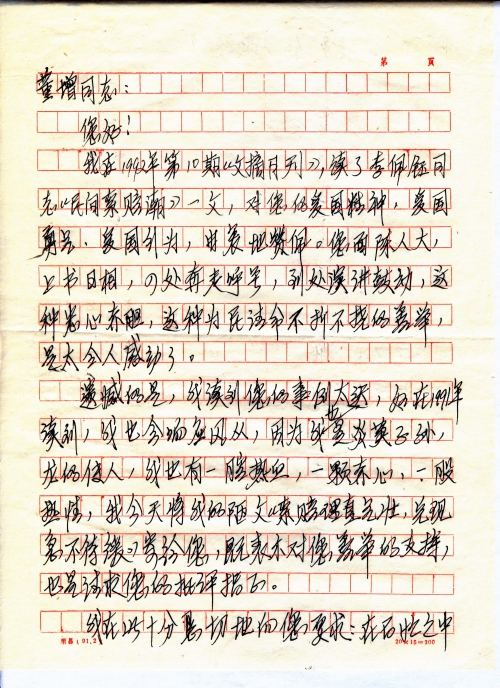 第 頁
董增同志：
您好！
我在1992年第10期《文摘月刊》，读了李佩钰同
志《民间索赔潮》一文，对您的爱国精神，爱国
勇气、爱国行为，由衷地赞佩。您面陈人大，
上书日相，四处奔走呼号，到处演讲鼓动，这
种忠心赤胆，这种为民请命不折不挠的义举，
是太令人感动了。
遗憾的是，我读到您的事例太迟，如在1991年
读到，我也会响应风从，因为我也是炎黄子孙，
龙的传人，我也有一腔热血，一颗赤心，一股
热情，我今天将我的陋文《索赔理直气壮，兑现
急不待缓》寄给您，既表示对您义举的支持，
也是请求您的批评指正。
我在此十分恳切地向您要求：在百忙之中
20×15=300